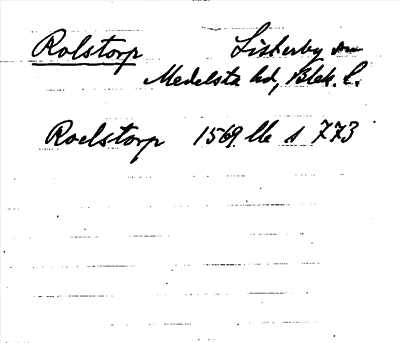 Rolstorp Listerby sn
Medelsta hd, Blek. l.
Roelstorp 1569 lb s 773